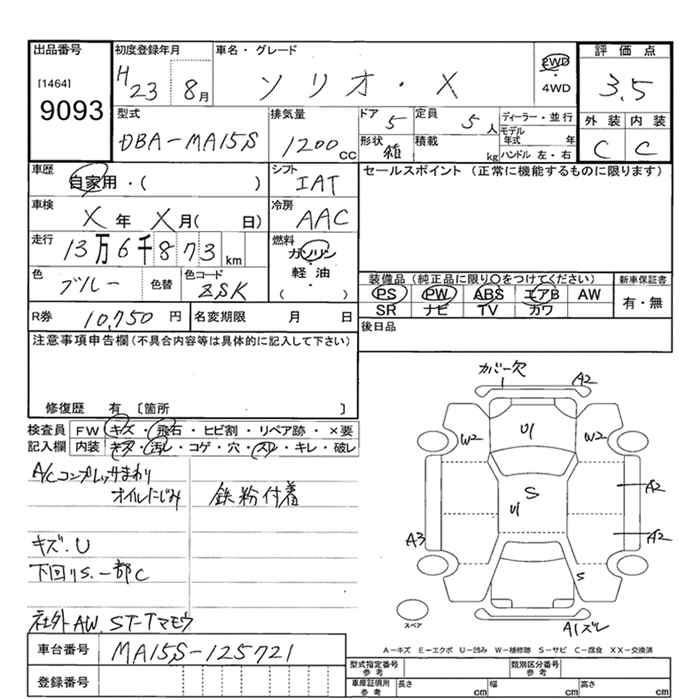 出品番号
[1464]
9093
初度登録年月
H23 8月
車名・グレード
ソリオ・X
2WD
・
4WD
評価点
3.5
外装 内装
C C
型式
DBA-MA15S
排気量
1200cc
ドア 5
定員 5人
形状 箱
積載 kg
ディーラー・並行
モデル年式 年
ハンドル 左・右
車歴
自家用・( )
シフト
IAT
セールスポイント (正常に機能するものに限ります)
車検
X年 X月( 日)
冷房
AAC
走行
13万6千873km
燃料
ガソリン
・
軽油
・
( )
色
ブルー
色替
色コード
ZSK
装備品 (純正品に限り○をつけてください)
新車保証書
PS PW ABS エアB AW
SR ナビ TV カワ
有・無
R券 10,750円
名変期限 月 日
後日品
注意事項申告欄(不具合内容等は具体的に記入して下さい)
修復歴 有 [箇所 ]
検査員
記入欄
FW キズ・飛石・ヒビ割・リペア跡・×要
内装 キズ・汚レ・コゲ・穴・スレ・キレ・破レ
A/Cコンプレッサまわり
オイルにじみ
鉄粉付着
キズ.U
下回りS.一部C
社外AW ST-Tマモウ
カバー欠
A2
W2
U1
W2
S
U1
A2
A3
A2
S
スペア
A1ズレ
A-キズ E-エクボ U-凹み W-補修跡 S-サビ C-腐食 XX-交換済
車台番号
MA15S-125721
登録番号
型式指定番号
参考
類別区分番号
参考
車庫証明用
参考
長さ cm
幅 cm
高さ cm